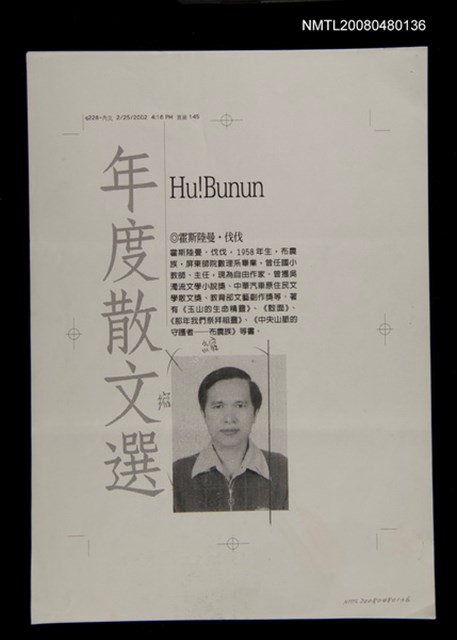 NMTL20080480136
q226-內文 2/25/2002 4:16 PM 頁面 145
年度散文選
Hu!Bunun
◎霍斯陸曼‧伐伐
霍斯陸曼‧伐伐，1958年生，布農
族，屏東師院數理系畢業，曾任國小
教師、主任，現為自由作家。曾獲吳
濁流文學小說獎、中華汽車原住民文
學散文獎、教育部文藝創作獎等。著
有《玉山的生命精靈》、《黥面》、
《那年我們祭拜祖靈》、《中央山脈的
守護者──布農族》等書。
NMTL20080480136